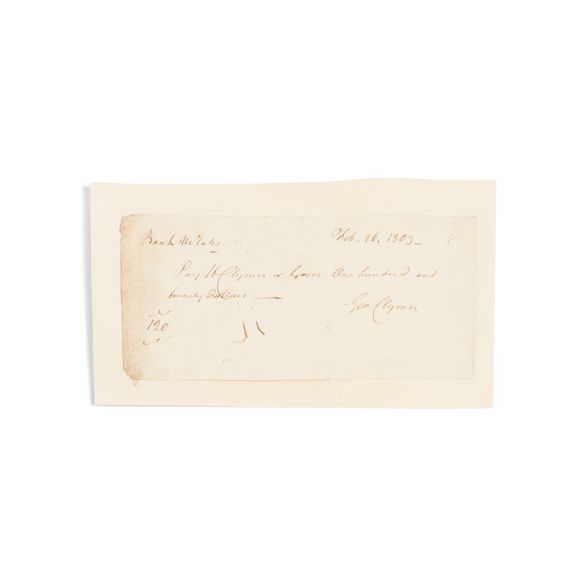 Bank U States Feb. 26. 1803
Pay H Clymer or bearer One hundred and
twenty Dollars
Geo Clymer
120